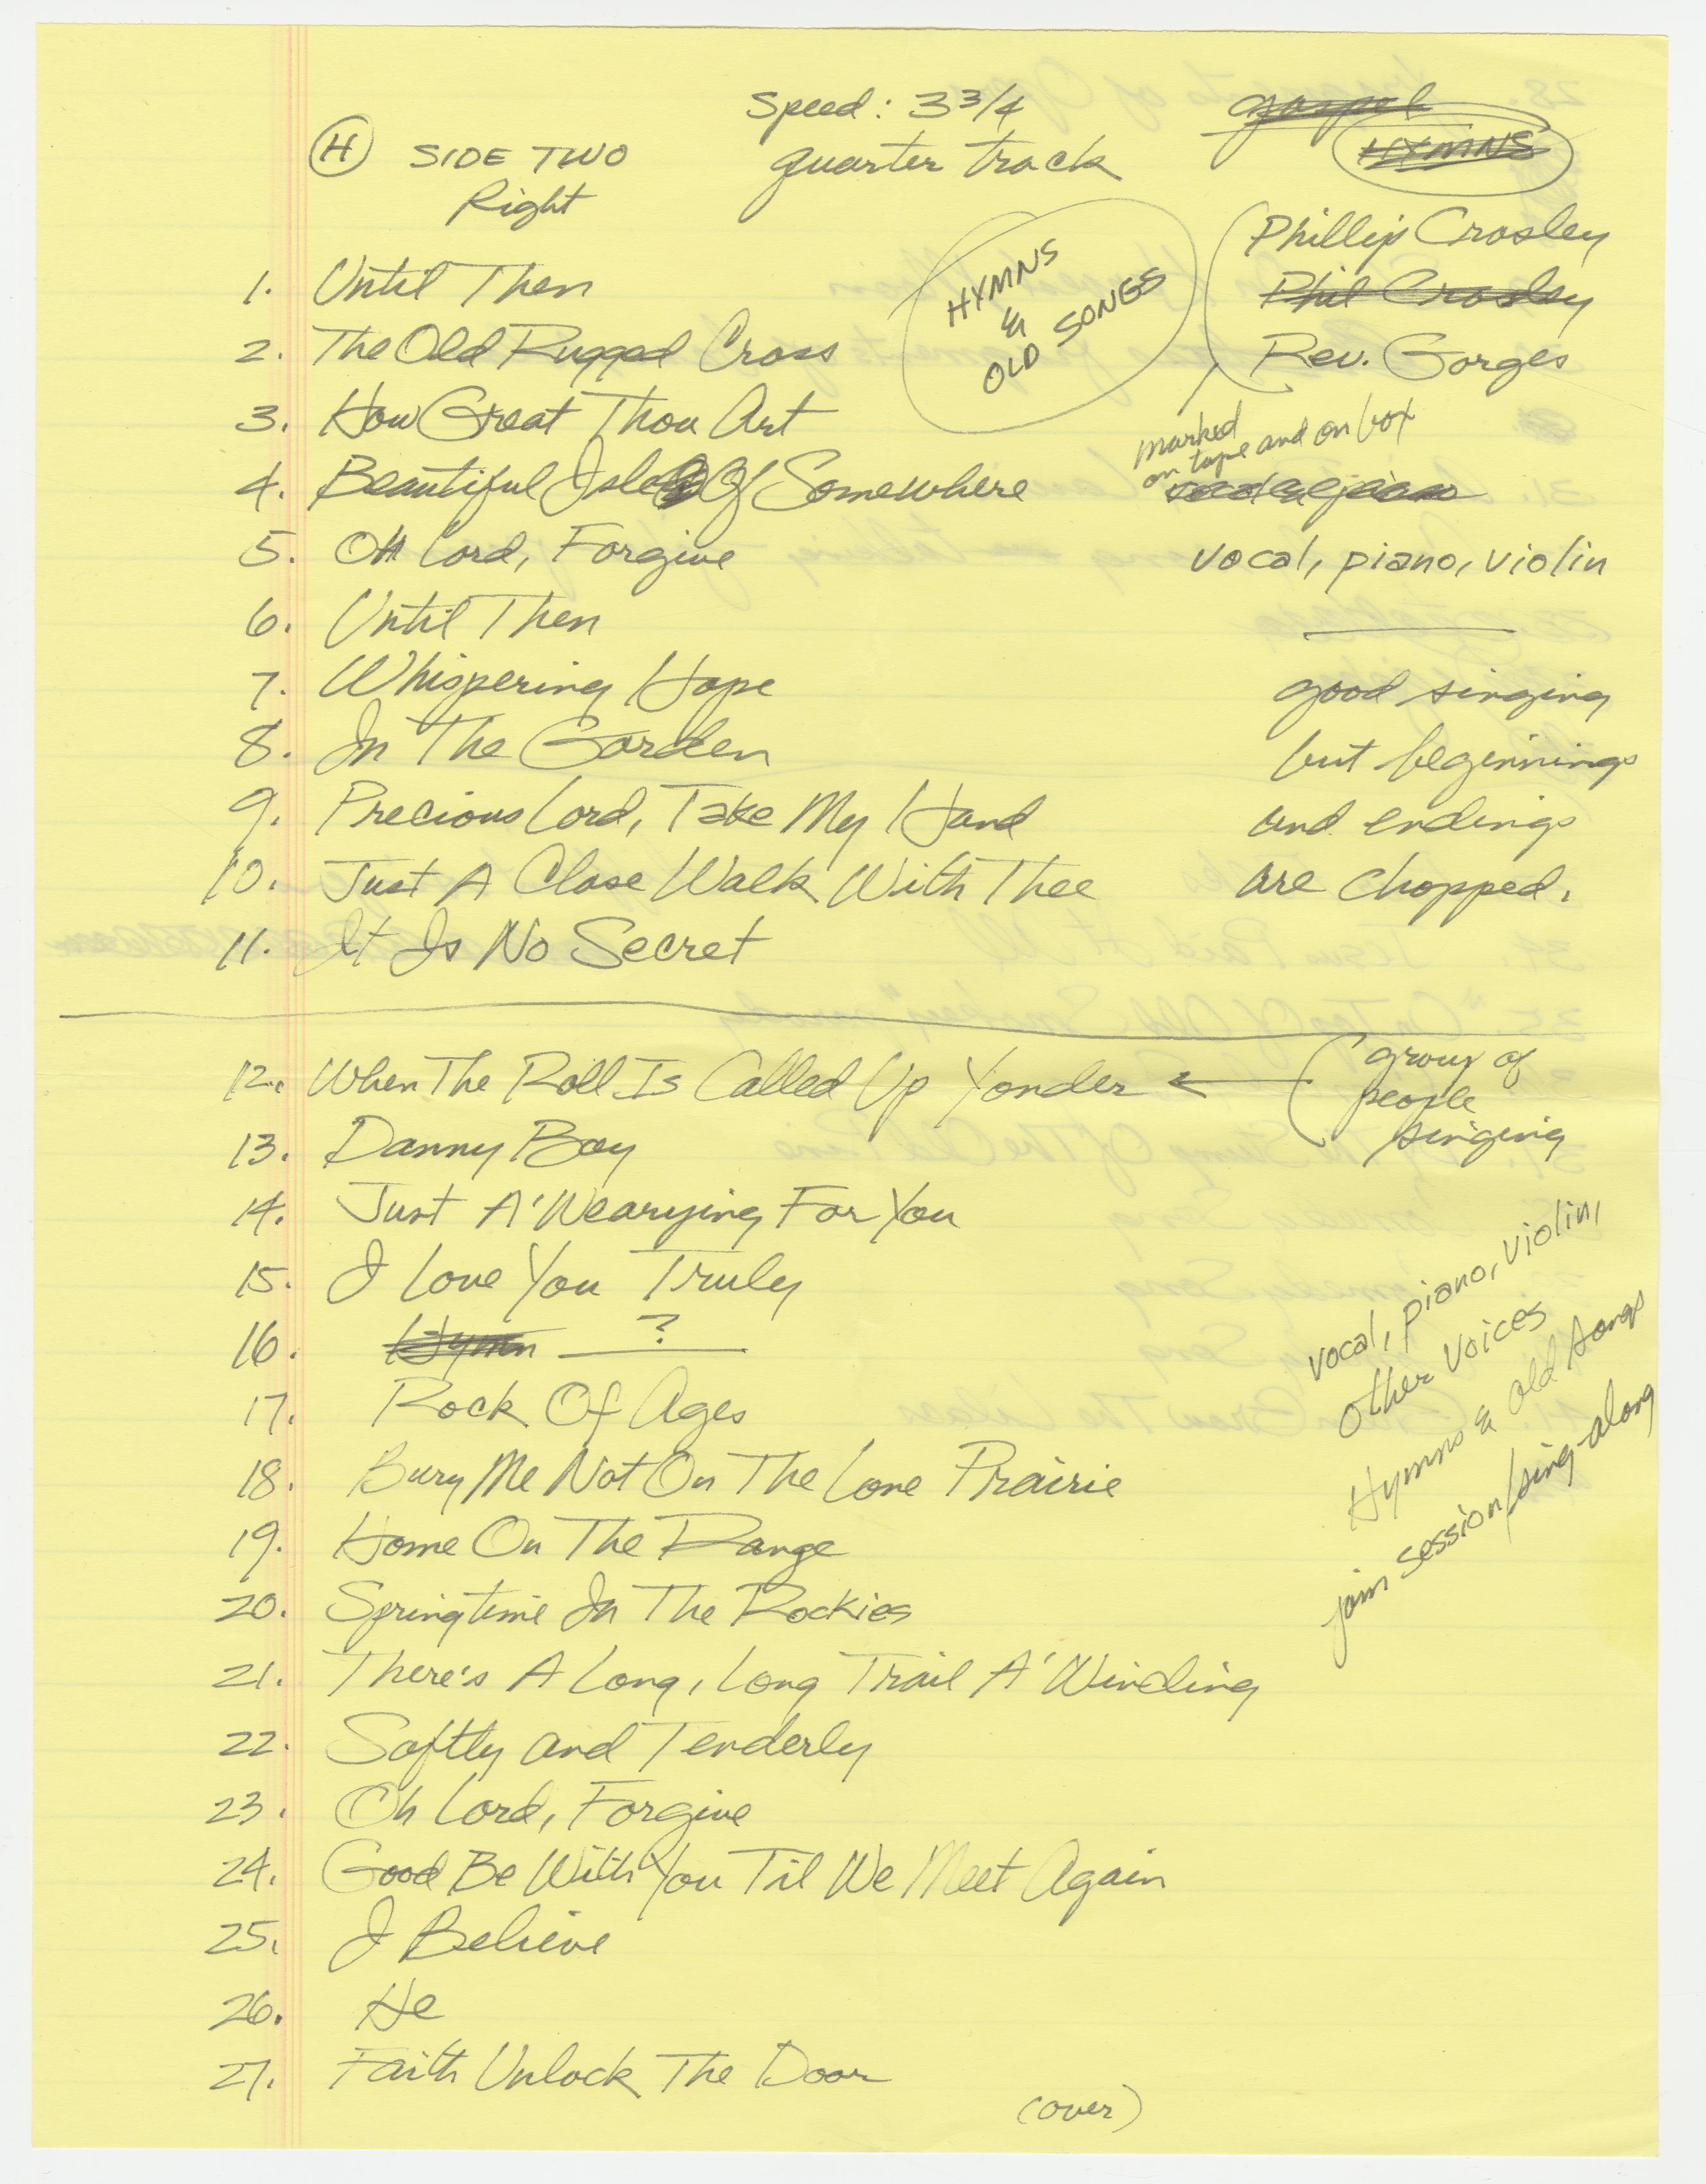 Speed: 3 3/4
gospel
H SIDE TWO
quarter track
HYMNS
Right
Phillip Crosley
Phil Crosley
Rev. Gorges
HYMNS
&
OLD SONGS
marked
on tape and on box
vocal, piano, violin
good singing
but beginnings
and endings
are chopped.
1. Until Then
2. The Old Rugged Cross
3. How Great Thou Art
4. Beautiful Isle Of Somewhere
5. Oh Lord, Forgive
6. Until Then
7. Whispering Hope
8. In The Garden
9. Precious Lord, Take My Hand
10. Just A Close Walk With Thee
11. It Is No Secret
12. When The Roll Is Called Up Yonder
group of
people
singing
13. Danny Boy
14. Just A' Wearying For You
15. I Love You Truly
16. Hymn ?
17. Rock Of Ages
18. Bury Me Not On The Lone Prairie
19. Home On The Range
20. Springtime In The Rockies
21. There's A Long, Long Trail A' Winding
22. Softly and Tenderly
23. Oh Lord, Forgive
24. Good Be With You Til We Meet Again
25. I Believe
26. He
27. Faith Unlock The Door
vocal, piano, violin,
other voices
Hymns & old songs
jam session/sing-along
(over)